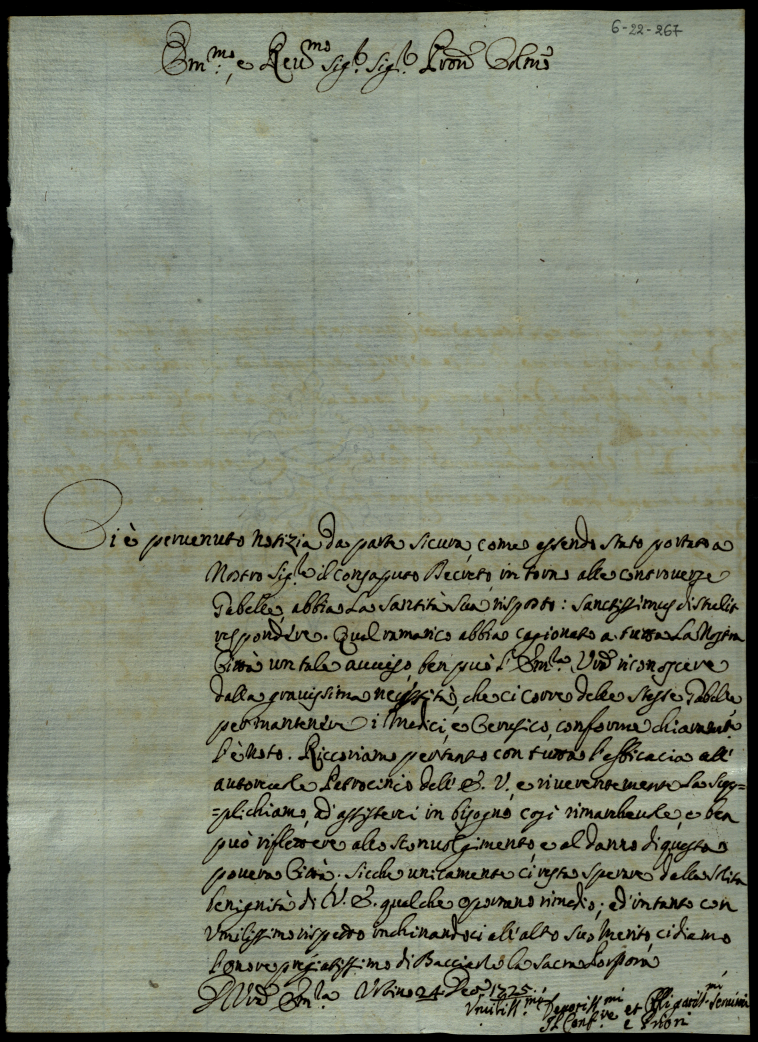 6-22-267
Em:mo, e Reu:mo Sig:r Sig:r Pron Colmo
Ci è peruenuto notizia da parte sicura, come essendo stato portato a
Nostro Sig:re il consaputo Decreto intorno alle controuerse
Tabelle, abbia La Santità Sua risposto: Sanctissimus distulit
respondere. Qual ramarico abbia cagionato a tutta La Nostra
Città un tale auuiso, ben può l'Em:za Vra riconoscere
dalla grauissima necessità, che ci corre delle stesse Tabelle
per mantenere i Medici, e Cerusico, conforme chiaramente
l'è noto. Riccoriamo pertanto con tutta l'efficacia all'
autoreuole Patrocinio dell'E. V., e riuerentemente La sup=
=plichiamo, ad assisterci in bisogno così rimarcheuole, e ben
può riflettere allo sconuolgimento, e al danno di questa
pouera Città. Sicche unicamente ci resta sperare dalla solita
benignità di V. E. qualche oportuno rimedio; ed intanto con
Vmilissimo rispetto inchinandoci all'alto suo Merito, ci diamo
l'onore pregiatissimo di Bacciarle la Sacra Porpora
D Vra Em:za Vrbino 24 Xbre 1725.
Vmiliss:mi Deuotiss:mi et Obligatiss:mi Seruitori
Il Conf:re e Priori